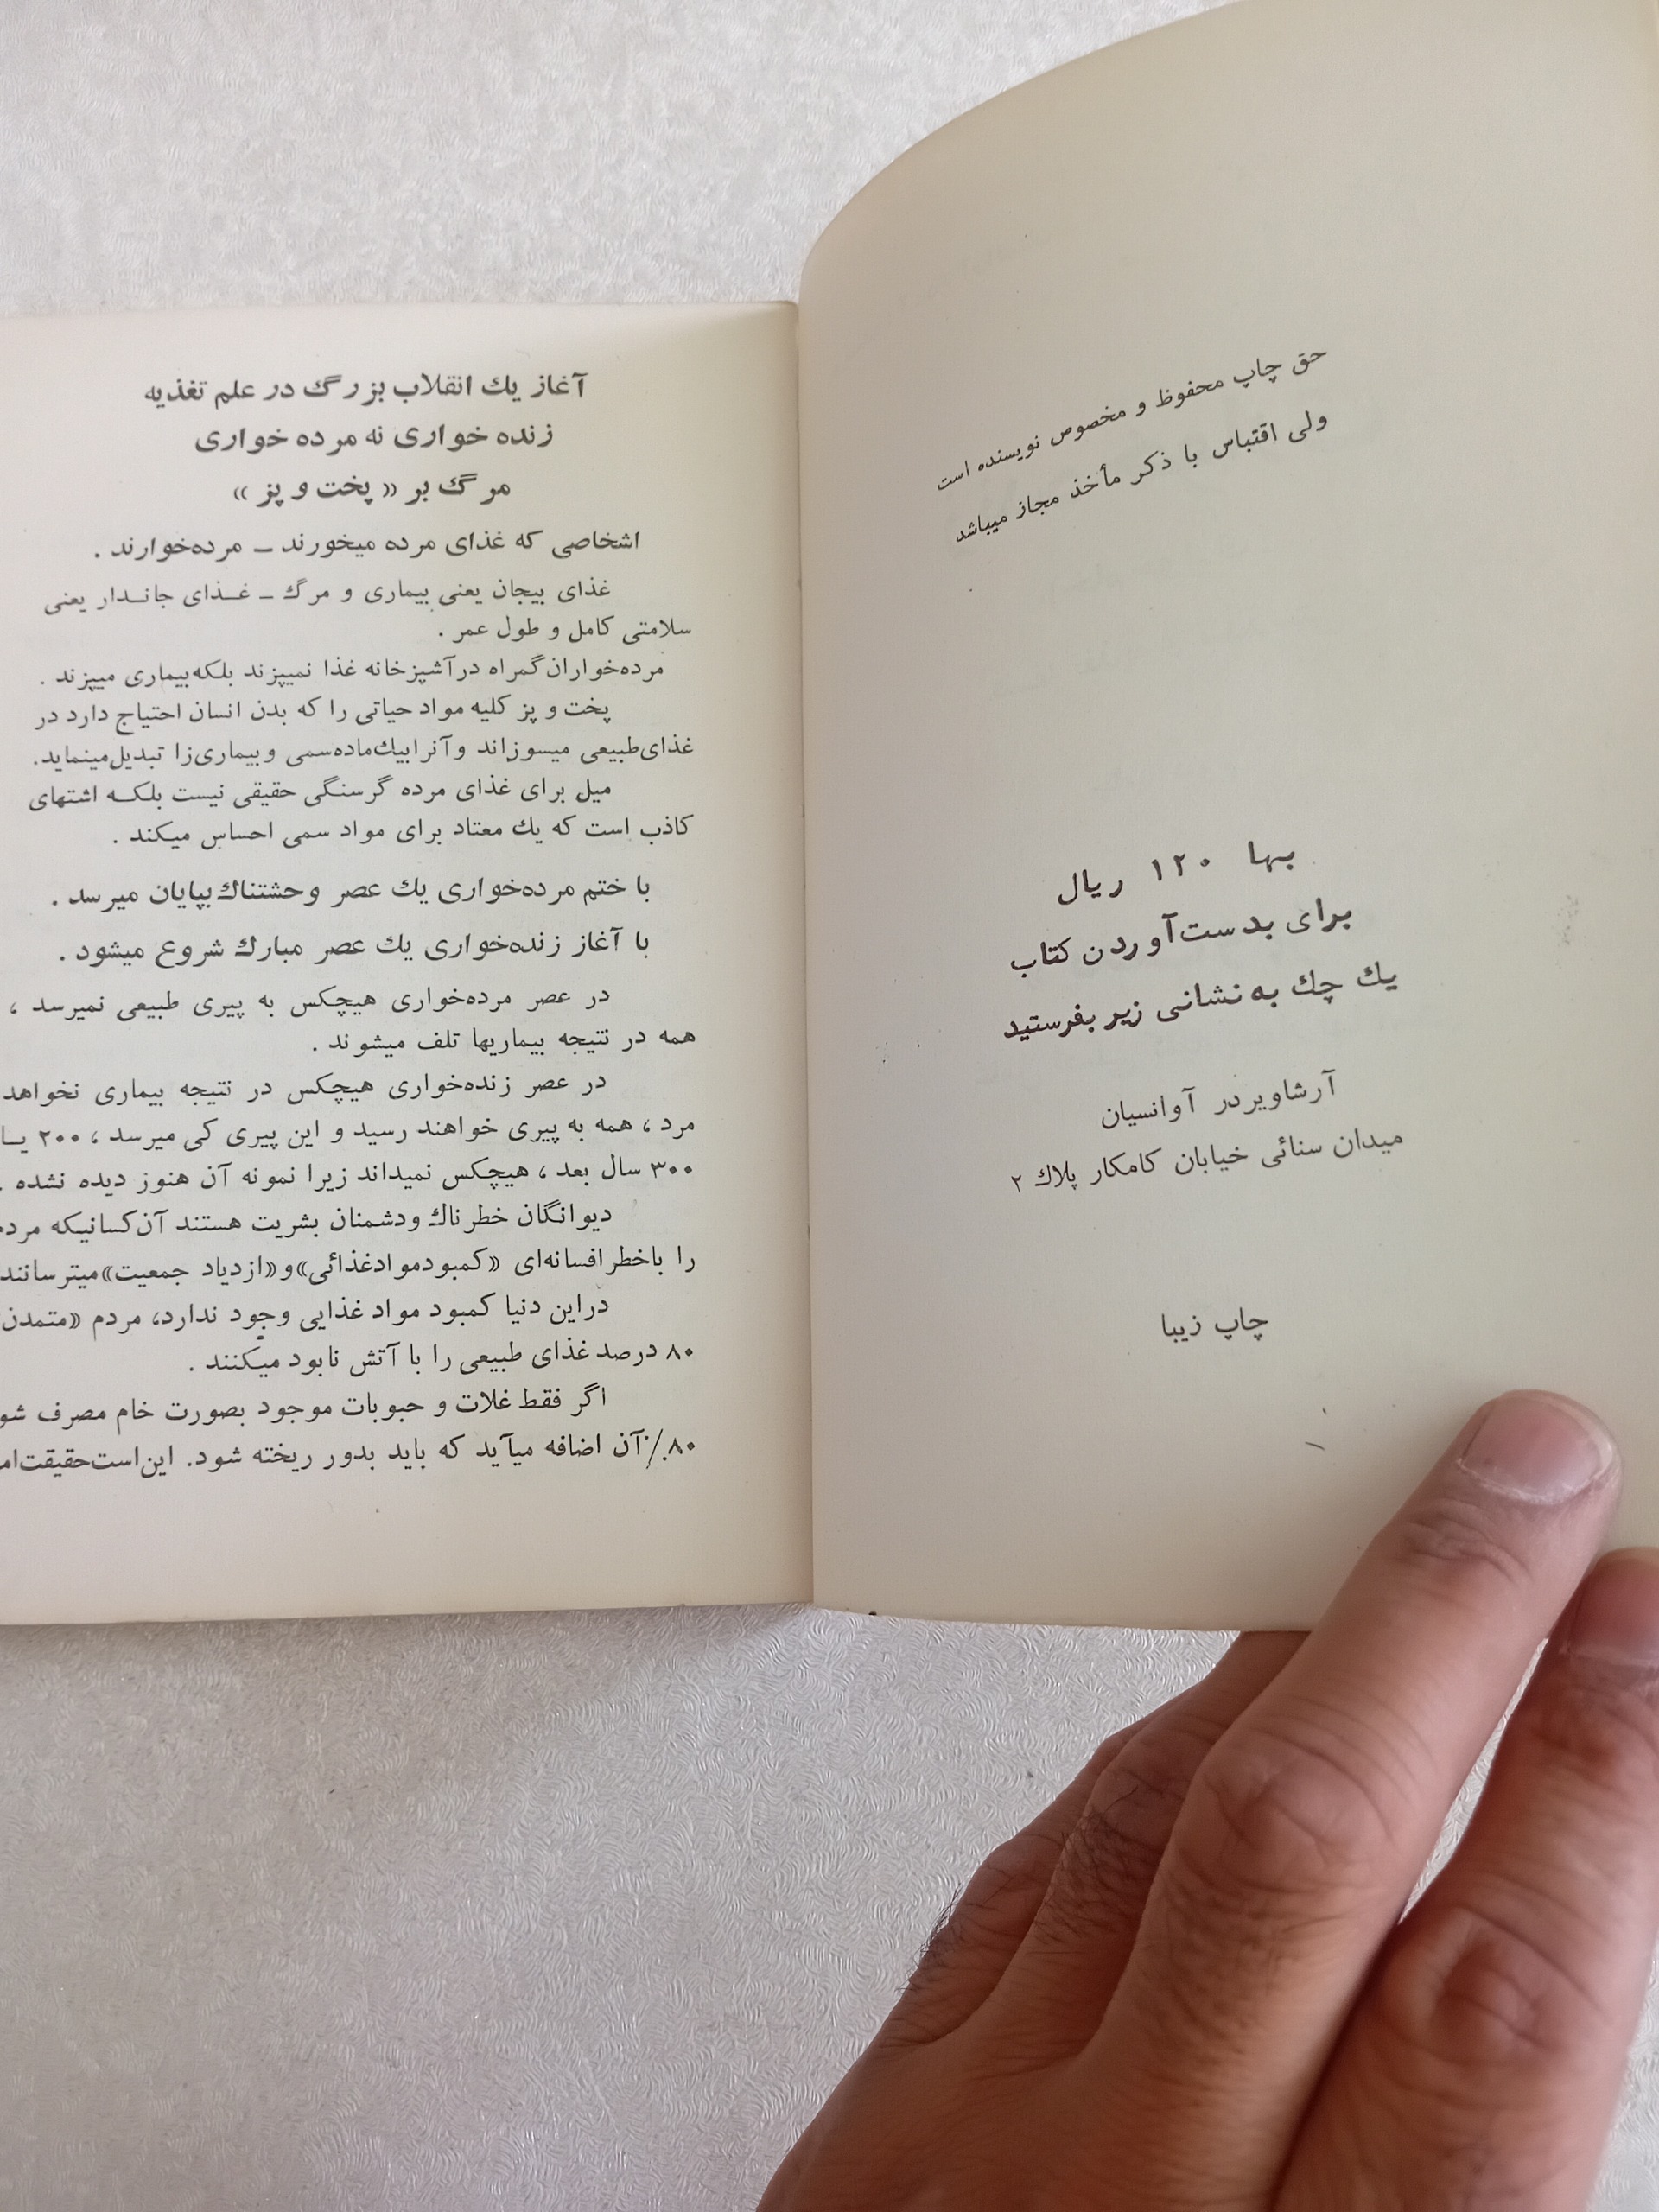 حق چاپ محفوظ و مخصوص نویسنده است
ولی اقتباس با ذکر مأخذ مجاز میباشد
بها ۱۲۰ ریال
برای بدست‌آوردن کتاب
یك چك به نشانی زیر بفرستید
آرشاویردر آوانسیان
میدان سنائی خیابان کامکار پلاك ۲
چاپ زیبا
آغاز یك انقلاب بزرگ در علم تغذیه
زنده خواری نه مرده خواری
مرگ بر «پخت و پز»
اشخاصی که غذای مرده میخورند ــ مرده‌خوارند .
غذای بیجان یعنی بیماری و مرگ ــ غــذای جانــدار یعنی
سلامتی کامل و طول عمر .
مرده‌خواران گمراه درآشپزخانه غذا نمیپزند بلکه بیماری میپزند .
پخت و پز کلیه مواد حیاتی را که بدن انسان احتیاج دارد در
غذای طبیعی میسوزاند و آنرا بیك ماده سمی و بیماری‌زا تبدیل مینماید.
میل برای غذای مرده گرسنگی حقیقی نیست بلکــه اشتهای
کاذب است که یك معتاد برای مواد سمی احساس میکند .
با ختم مرده‌خواری یك عصر وحشتناك بپایان میرسد .
با آغاز زنده‌خواری یك عصر مبارك شروع میشود .
در عصر مرده‌خواری هیچکس به پیری طبیعی نمیرسد ،
همه در نتیجه بیماریها تلف میشوند .
در عصر زنده‌خواری هیچکس در نتیجه بیماری نخواهد
مرد ، همه به پیری خواهند رسید و این پیری کی میرسد ، ۲۰۰ یــا
۳۰۰ سال بعد ، هیچکس نمیداند زیرا نمونه آن هنوز دیده نشده .
دیوانگان خطرناك و دشمنان بشریت هستند آن کسانیکه
را باخطر افسانه‌ای «کمبود مواد غذائی» و «ازدیاد جمعیت» میترسانند
دراین دنیا کمبود مواد غذایی وجود ندارد، مردم «متمدن
۸۰ درصد غذای طبیعی را با آتش نابود میکنند .
اگر فقط غلات و حبوبات موجود بصورت خام مصرف
۸۰٪ آن اضافه میآید که باید بدور ریخته شود. این‌است حقیقت